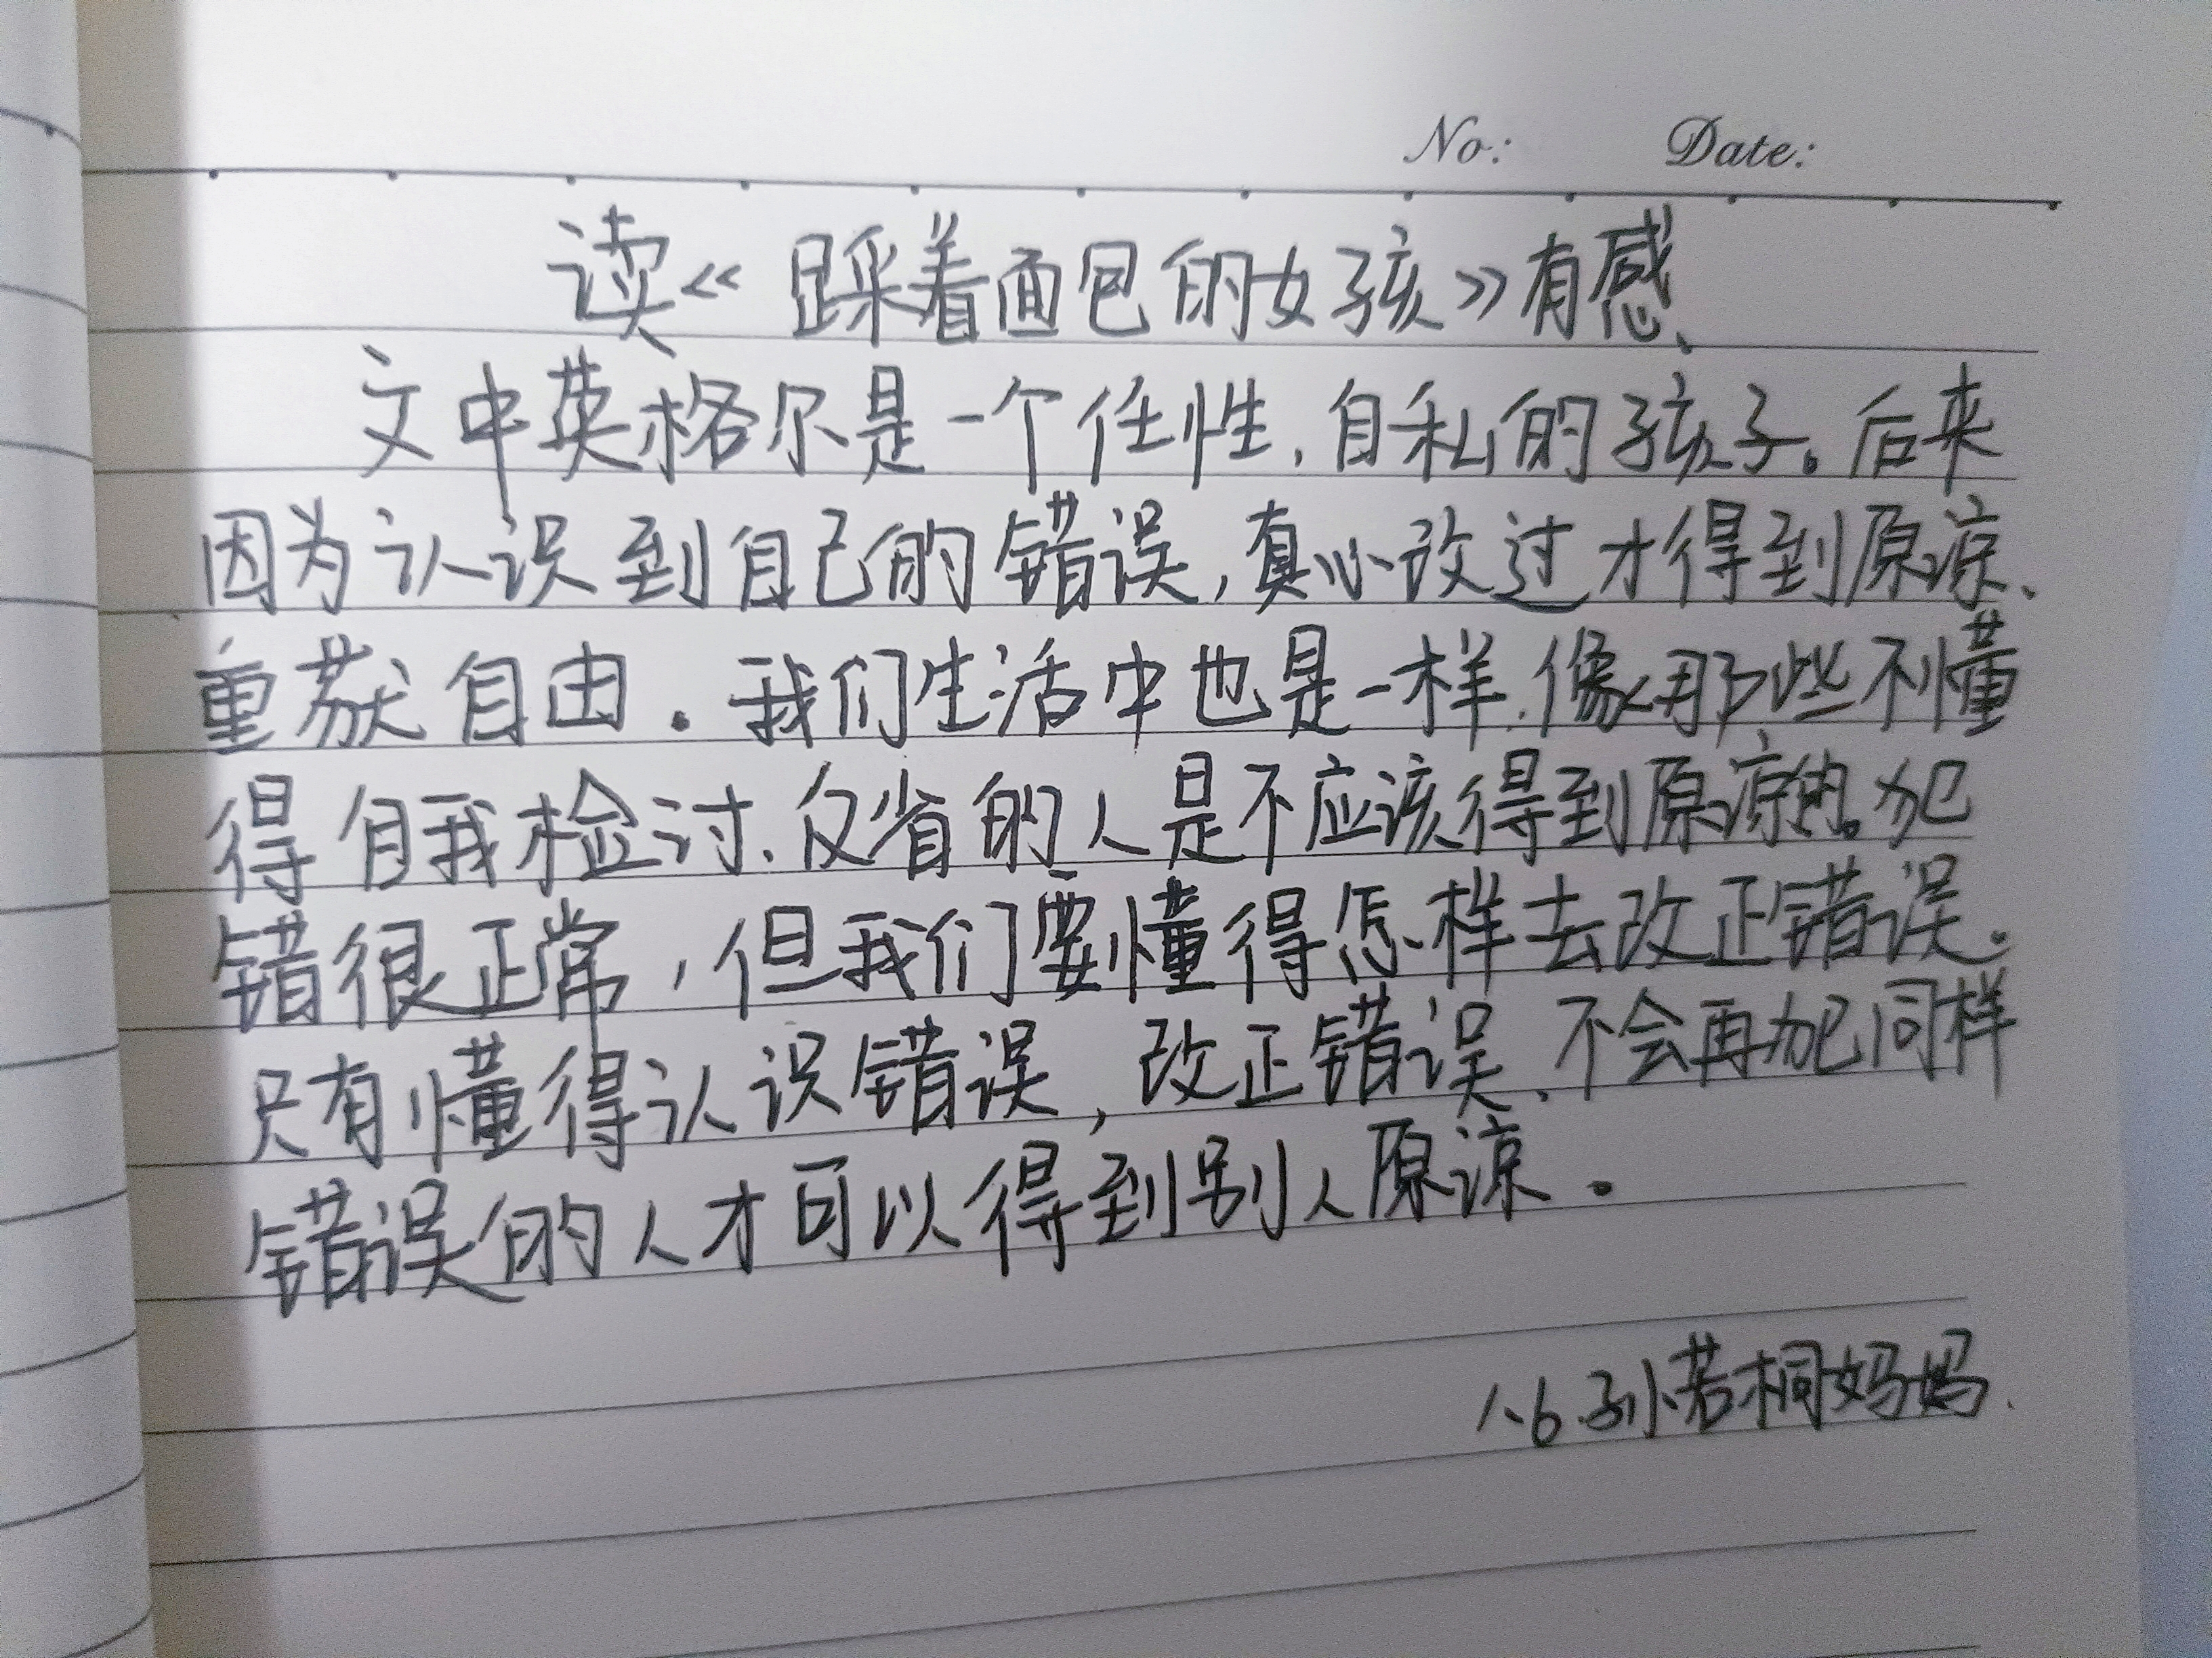 No: Date:
读《踩着面包的女孩》有感、
文中英格尔是一个任性,自私的孩子。后来
因为认识到自己的错误,真心改过才得到原谅、
重获自由。我们生活中也是一样,像那些不懂
得自我检讨、反省的人是不应该得到原谅的。犯
错很正常,但我们要懂得怎样去改正错误。
只有懂得认识错误,改正错误、不会再犯同样
错误的人才可以得到别人原谅。
八.6.孙若桐妈妈.